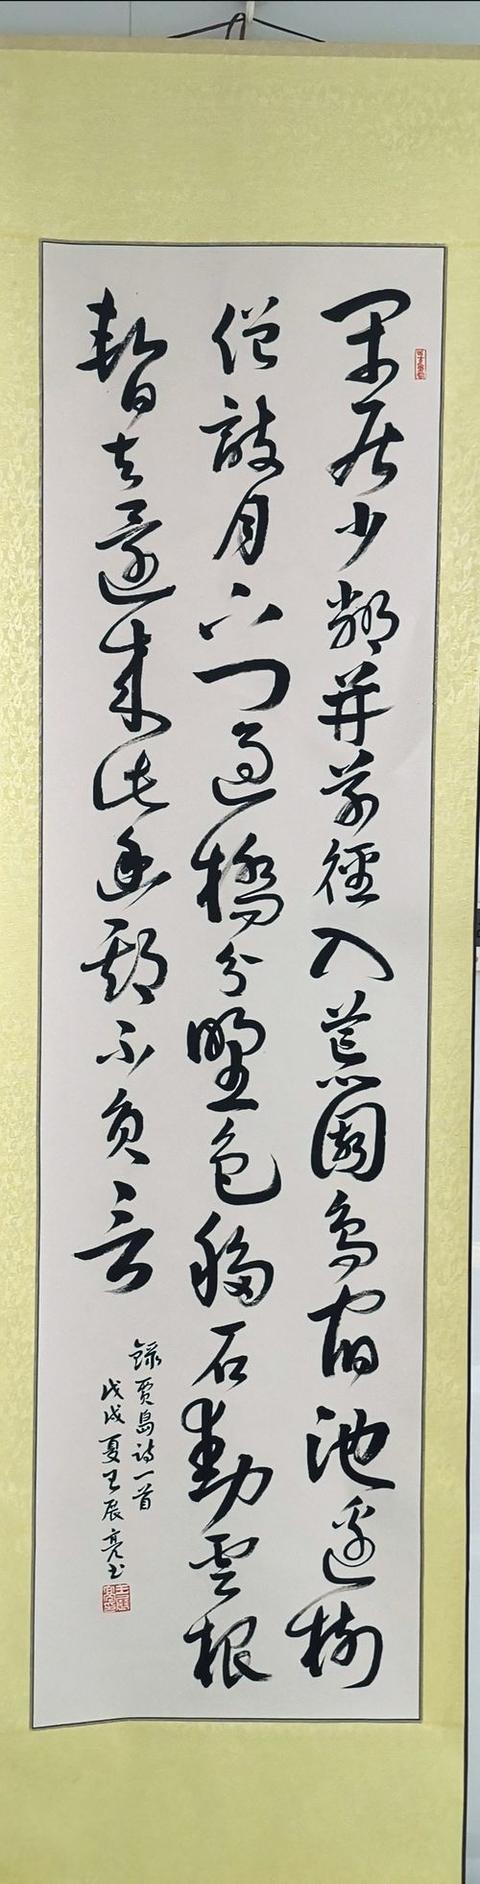 閑居少鄰并草徑入荒園鳥宿池邊樹
僧敲月下門過橋分野色移石動雲根
暫去還來此幽期不負言
錄賈島詩一首
戊戌夏王展亮书